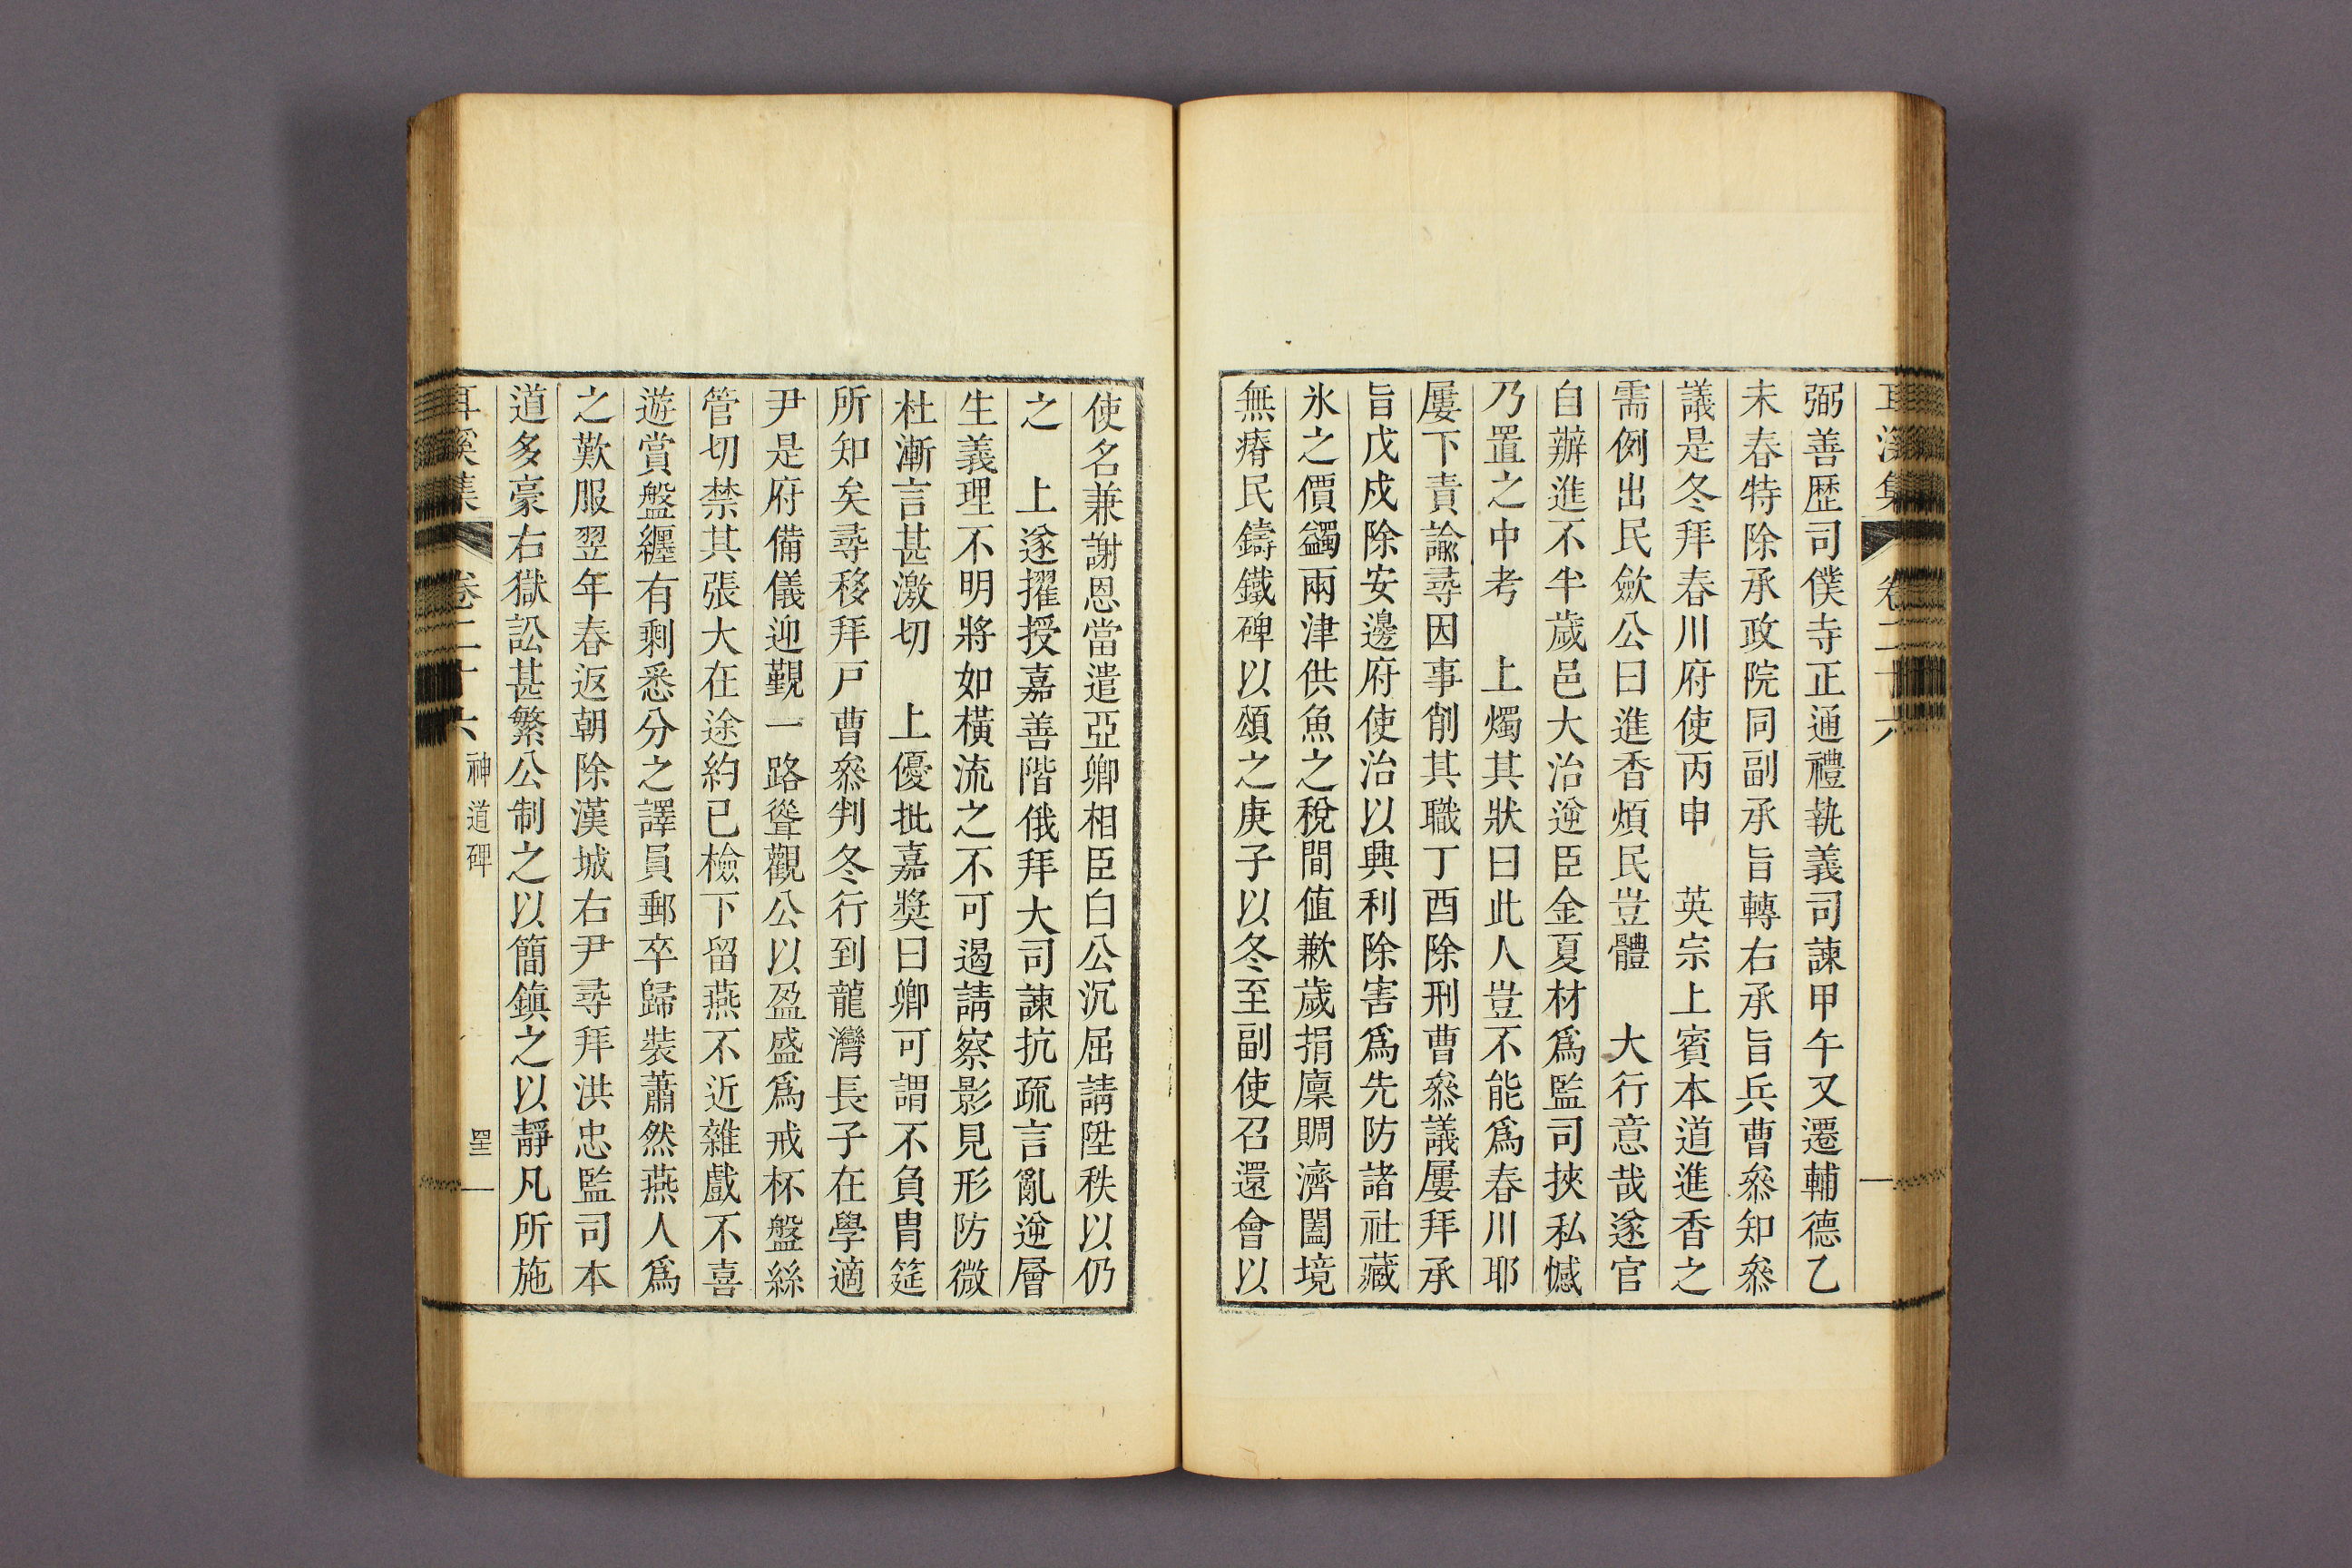 耳溪集 卷二十六
弼善歷司僕寺正通禮執義司諫甲午又遷輔德乙
未春特除承政院同副承旨轉右承旨兵曹叅知叅
議是冬拜春川府使丙申 英宗上賓本道進香之
需例出民斂公曰進香煩民豈體 大行意哉遂官
自辦進不半歲邑大治逆臣金夏材爲監司挾私憾
乃置之中考 上燭其狀曰此人豈不能爲春川耶
屢下責諭尋因事削其職丁酉除刑曹叅議屢拜承
旨戊戌除安邊府使治以興利除害爲先防諸社藏
氷之價蠲兩津供魚之稅間値歉歲捐廩賙濟闔境
無瘠民鑄鐵碑以頌之庚子以冬至副使召還會以
使名兼謝恩當遣亞卿相臣白公沉屈請陞秩以仍
之 上遂擢授嘉善階俄拜大司諫抗疏言亂逆層
生義理不明將如橫流之不可遏請察影見形防微
杜漸言甚激切 上優批嘉奬曰卿可謂不負胄筵
所知矣尋移拜戶曹叅判冬行到龍灣長子在學適
尹是府備儀迎覲一路聳觀公以盈盛爲戒杯盤絲
管切禁其張大在途約已檢下留燕不近雜戲不喜
遊賞盤纏有剩悉分之譯員郵卒歸裝蕭然燕人爲
之歎服翌年春返朝除漢城右尹尋拜洪忠監司本
道多豪右獄訟甚繁公制之以簡鎭之以靜凡所施
耳溪集 卷二十六 神道碑